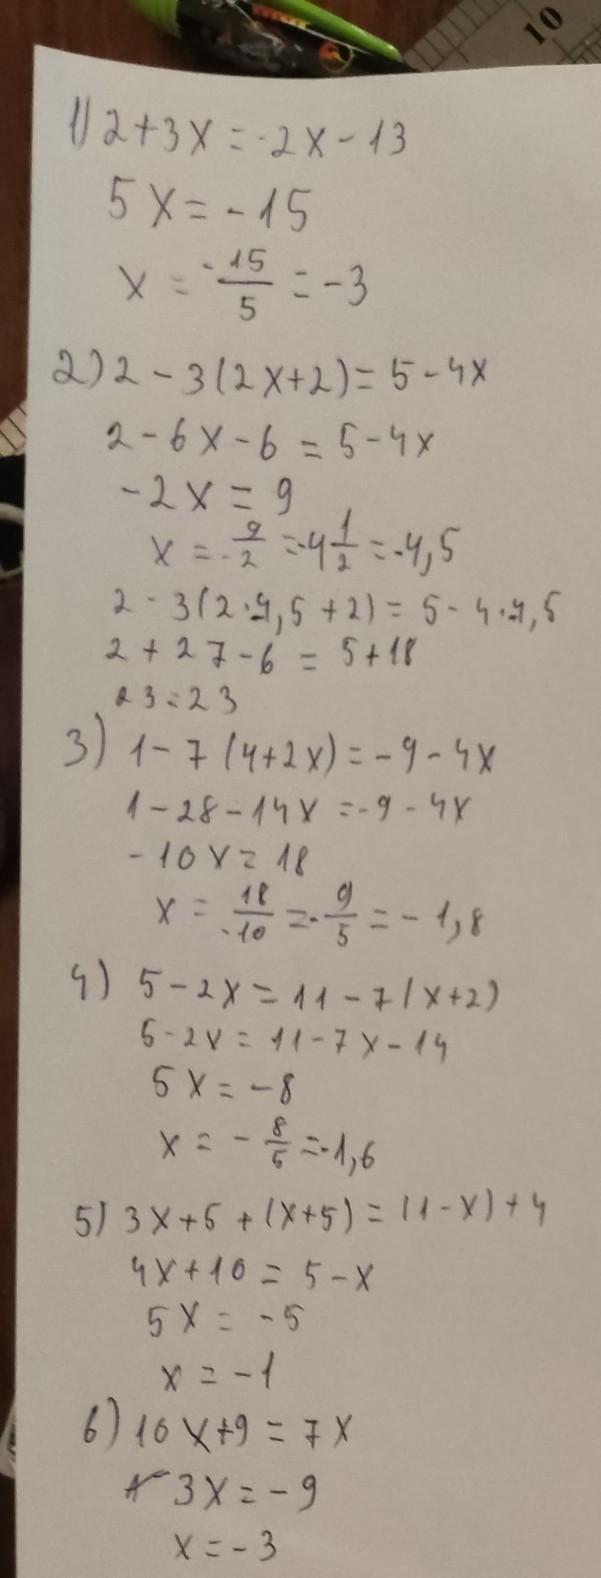 10
1) 2+3x=-2x-13
5x=-15
x=-15/5=-3
2) 2-3(2x+2)=5-4x
2-6x-6=5-4x
-2x=9
x=-9/2=-4 1/2=-4,5
2-3(2·4,5+2)=5-4·4,5
2+27-6=5+18
23=23
3) 1-7(4+2x)=-9-4x
1-28-14x=-9-4x
-10x=18
x=18/-10=-9/5=-1,8
4) 5-2x=11-7(x+2)
5-2x=11-7x-14
5x=-8
x=-8/5=-1,6
5) 3x+5+(x+5)=(1-x)+4
4x+10=5-x
5x=-5
x=-1
6) 10x+9=7x
3x=-9
x=-3